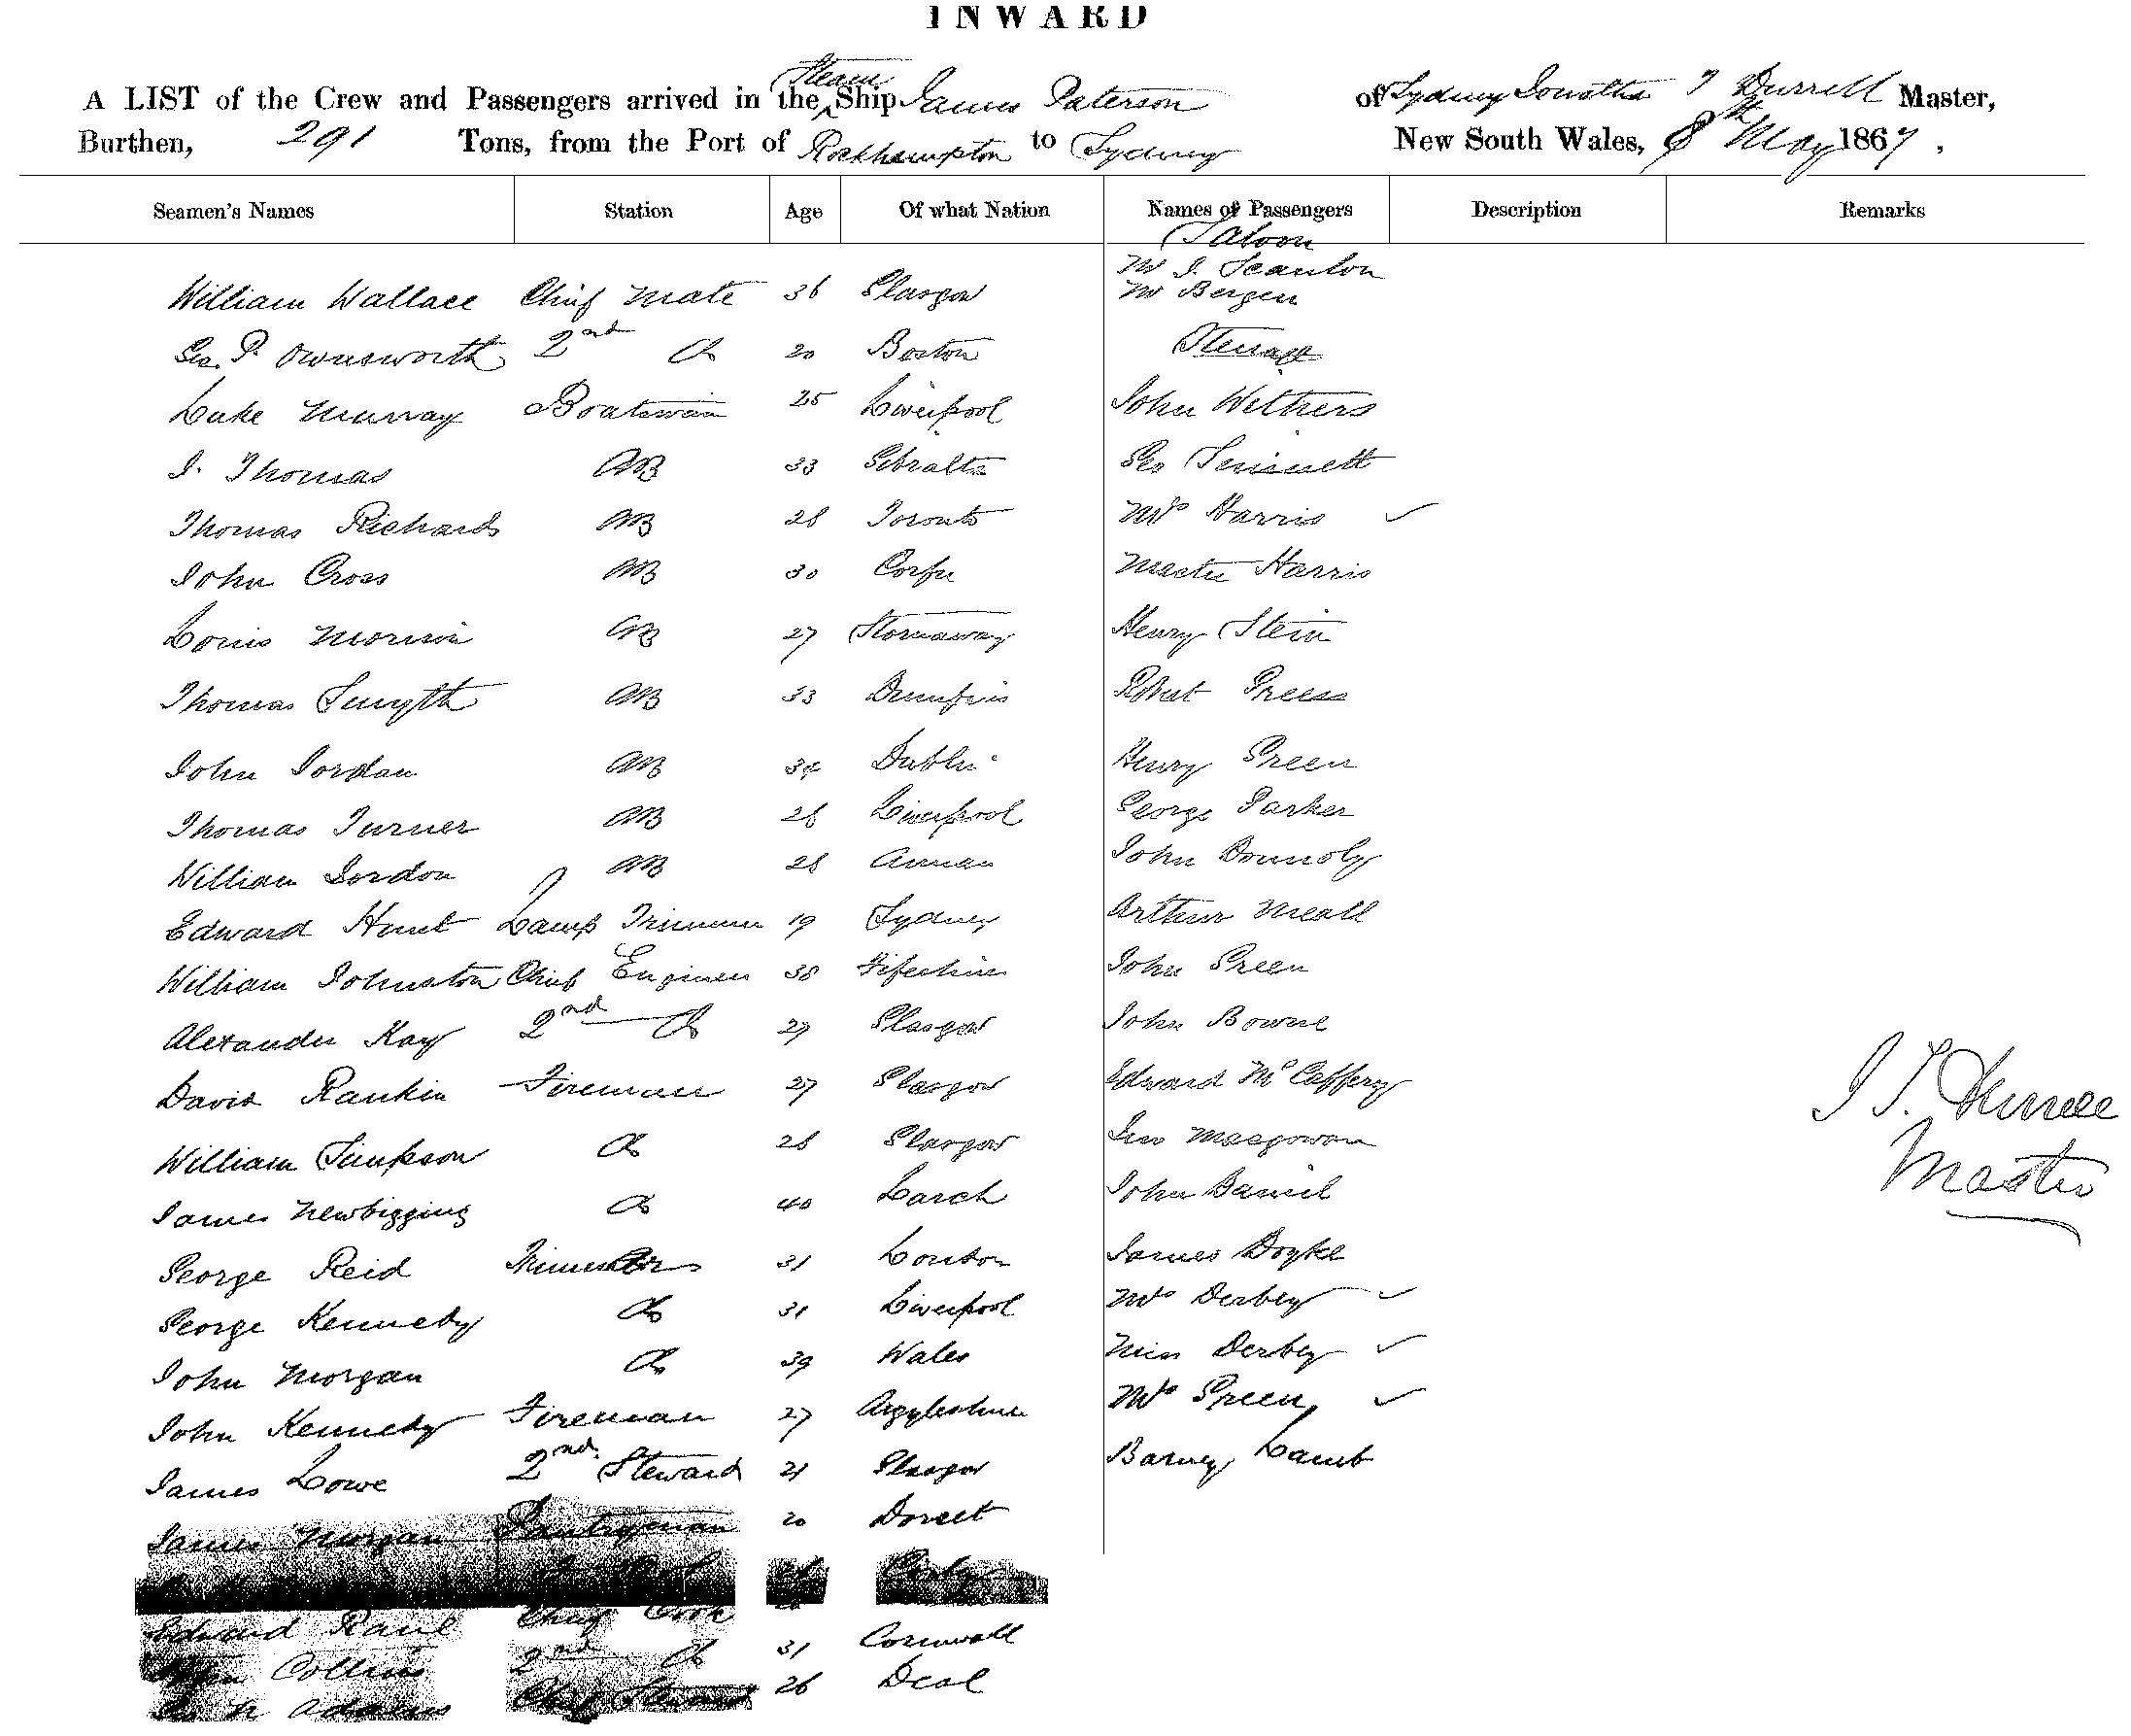 INWARD
A LIST of the Crew and Passengers arrived in the Steam Ship James Paterson of Sydney T Durrell Master,
Burthen, 291 Tons, from the Port of Rockhampton to Sydney New South Wales, 8th May 1867,
Seamen's Names Station Age Of what Nation Names of Passengers Description Remarks
Saloon
Mr J. Scanlon
William Wallace Chief Mate 36 Glasgow Mr Bergen
Geo. P. Ownsworth 2nd Do 20 Boston Steerage
Luke Murray Boatswain 25 Liverpool John Withers
J. Thomas AB 33 Gibralta Geo Sennett
Thomas Richards AB 28 Toronto Mrs Harris
John Cross AB 30 Corfu Master Harris
Louis Morrison AB 27 Stornaway Henry Stein
Thomas Smyth AB 33 Dumfries Robert Green
John Jordan AB 34 Dublin Henry Green
Thomas Turner AB 28 Liverpool George Parker
William Gordon AB 28 Annan John Donnoly
Edward Hunt Lamp Trimmer 19 Sydney Arthur Neall
William Johnston Chief Engineer 38 Fifeshire John Green
Alexander Kay 2nd Do 29 Glasgow John Bowne
David Rankin Fireman 27 Glasgow Edward McCaffery
William Simpson Do 28 Glasgow Jno Macgowan
James Newbigging Do 40 Larch John Daniel
George Reid Trimmer 31 London James Doyle
George Kennedy Do 31 Liverpool Mrs Derbey
John Morgan Do 39 Wales Miss Derbey
John Kennedy Fireman 27 Argyleshire Mrs Green
James Lowe 2nd Steward 21 Glasgow Barney Lamb
James Morgan Pantryman 20 Dorset
Edward Raul Chief Cook
Collins 2nd Do 31 Cornwall
Adams Chief Steward 26 Deal
J T. Durrell
Master